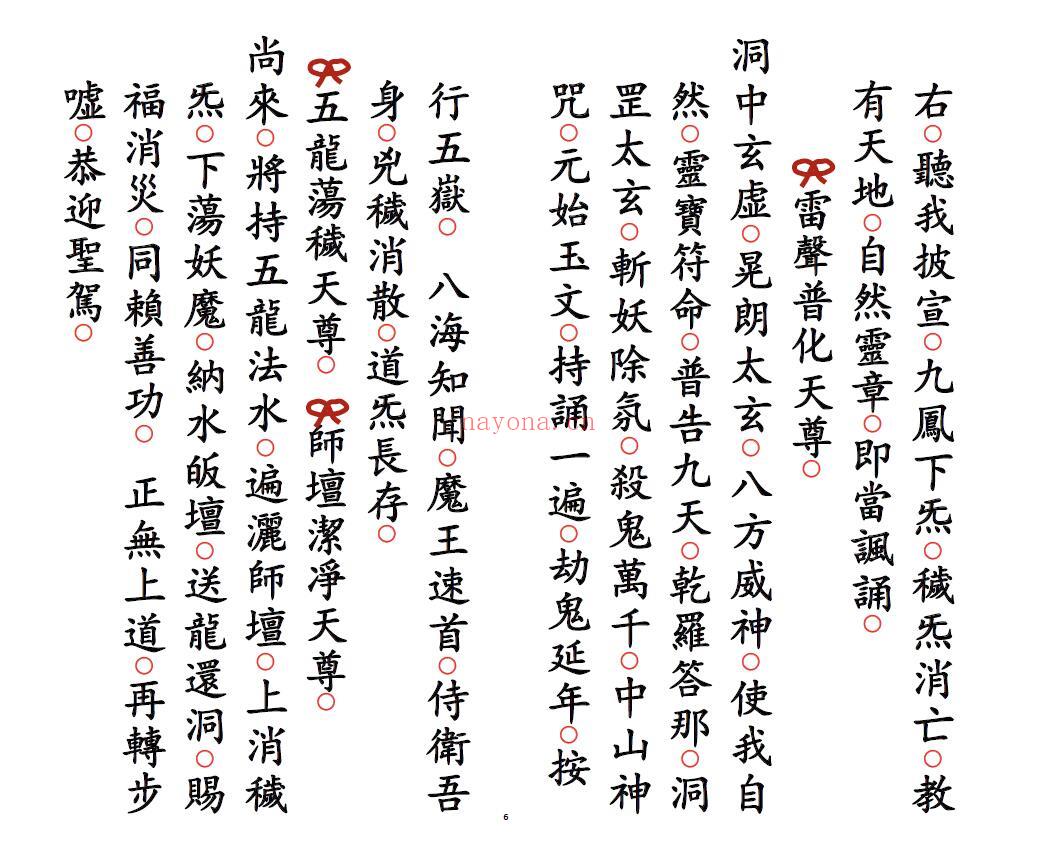 右○聽我披宣○九鳳下炁○穢炁消亡○教
有天地○自然靈章○即當諷誦○
雷聲普化天尊○
洞中玄虛○晃朗太玄○八方威神○使我自
然○靈寶符命○普告九天○乾羅答那○洞
罡太玄○斬妖除氛○殺鬼萬千○中山神
咒○元始玉文○持誦一遍○劫鬼延年○按
行五嶽○ 八海知聞○魔王速首○侍衛吾
身○兇穢消散○道炁長存○
五龍蕩穢天尊○ 師壇潔淨天尊○
尚來○將持五龍法水○遍灑師壇○上消穢
炁○下蕩妖魔○納水皈壇○送龍還洞○賜
福消災○同賴善功○ 正無上道○再轉步
噓○恭迎聖駕○
nayona.cn
6